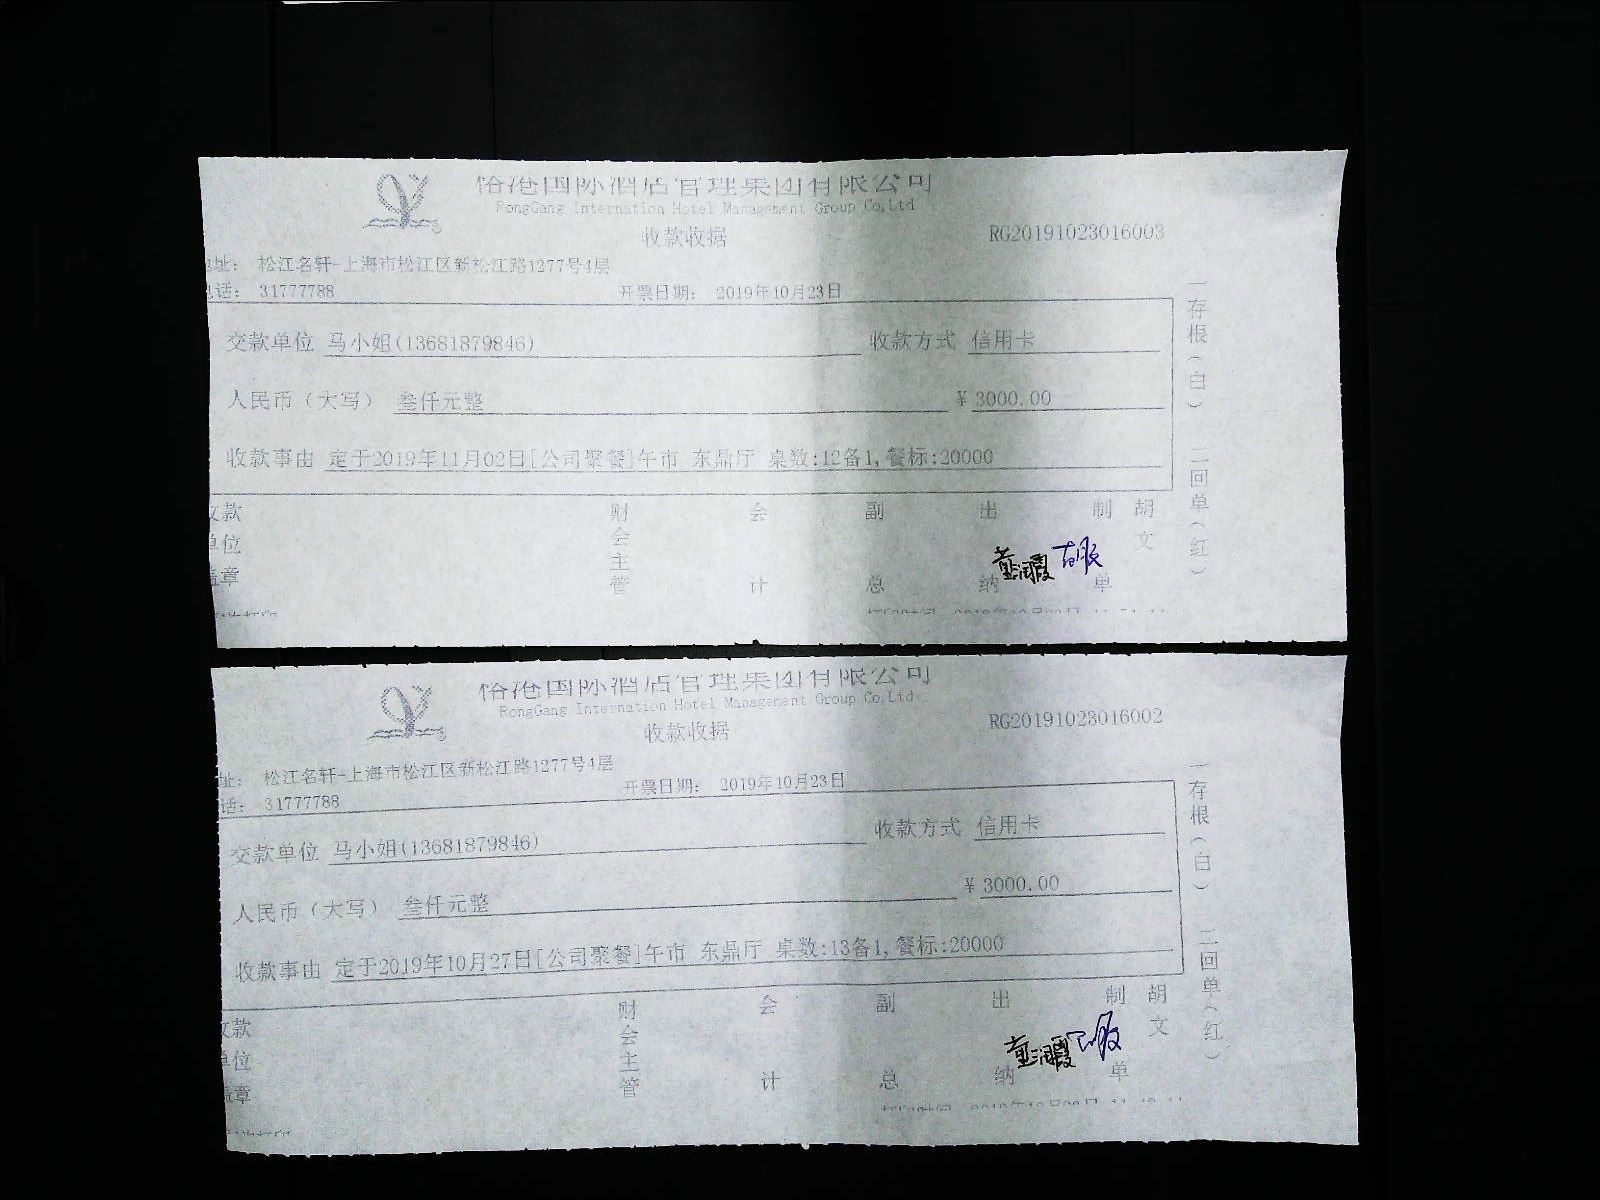 国际酒店管理集团有限公司
RongGang Internation Hotel Management Group Co,Ltd
收款收据
RG20191023016003
址： 松江名轩-上海市松江区新松江路1277号4层
话： 31777788
开票日期： 2019年10月23日
交款单位 马小姐(13681879846)
收款方式 信用卡
人民币（大写） 叁仟元整
￥ 3000.00
收款事由 定于2019年11月02日[公司聚餐]午市 东鼎厅 桌数:12备1,餐标:20000
一存根（白） 二回单（红）
收款单位盖章
财会主管
会计
副总
出纳
制单
胡文
国际酒店管理集团有限公司
RongGang Internation Hotel Management Group Co,Ltd
收款收据
RG20191023016002
址： 松江名轩-上海市松江区新松江路1277号4层
话： 31777788
开票日期： 2019年10月23日
交款单位 马小姐(13681879846)
收款方式 信用卡
人民币（大写） 叁仟元整
￥ 3000.00
收款事由 定于2019年10月27日[公司聚餐]午市 东鼎厅 桌数:13备1,餐标:20000
一存根（白） 二回单（红）
收款单位盖章
财会主管
会计
副总
出纳
制单
胡文